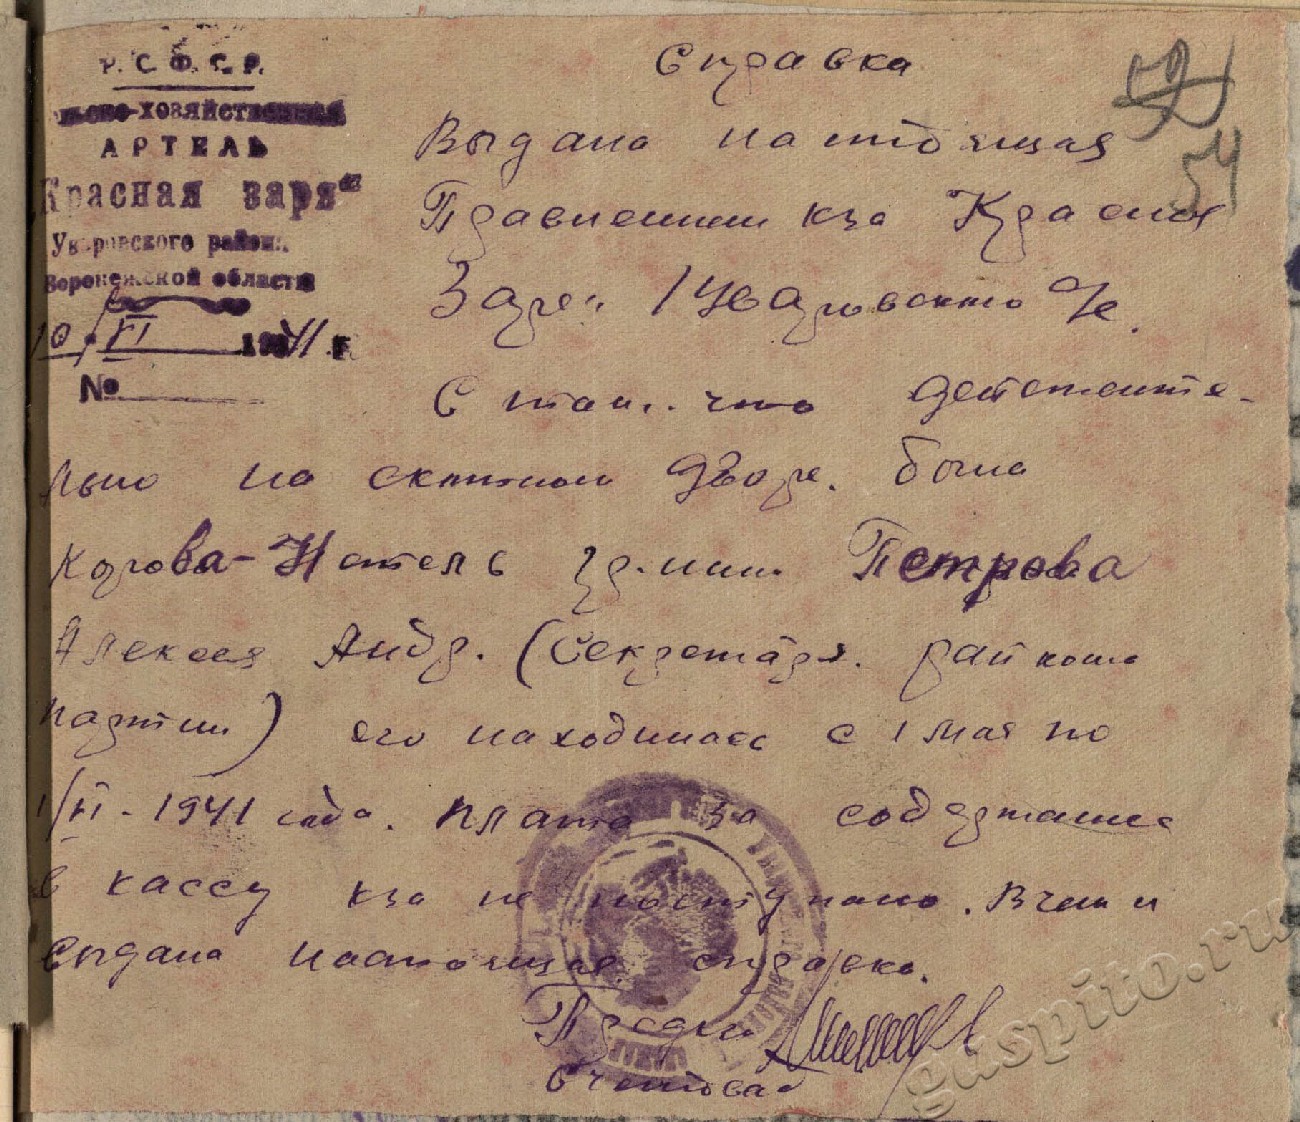 Р.С.Ф.С.Р.
льско-хозяйственная
АРТЕЛЬ
Красная заря"
Уваровского района
Воронежской области
10/VI 1941 г.
№
52
54
Справка
Выдана настоящая
Правлением кза Красная
Заря Уваровского
в том. что действите-
льно на скотном дворе. была
Корова-
Петрова
Алексея Андр. (Секретаря. райкома
партии) его находилась с 1 мая по
1/VI - 1941 года. плата за содержание
в кассу кза не поступало. В чем и
выдана настоящая справка.
Предки
Счетовод
gaspito.ru